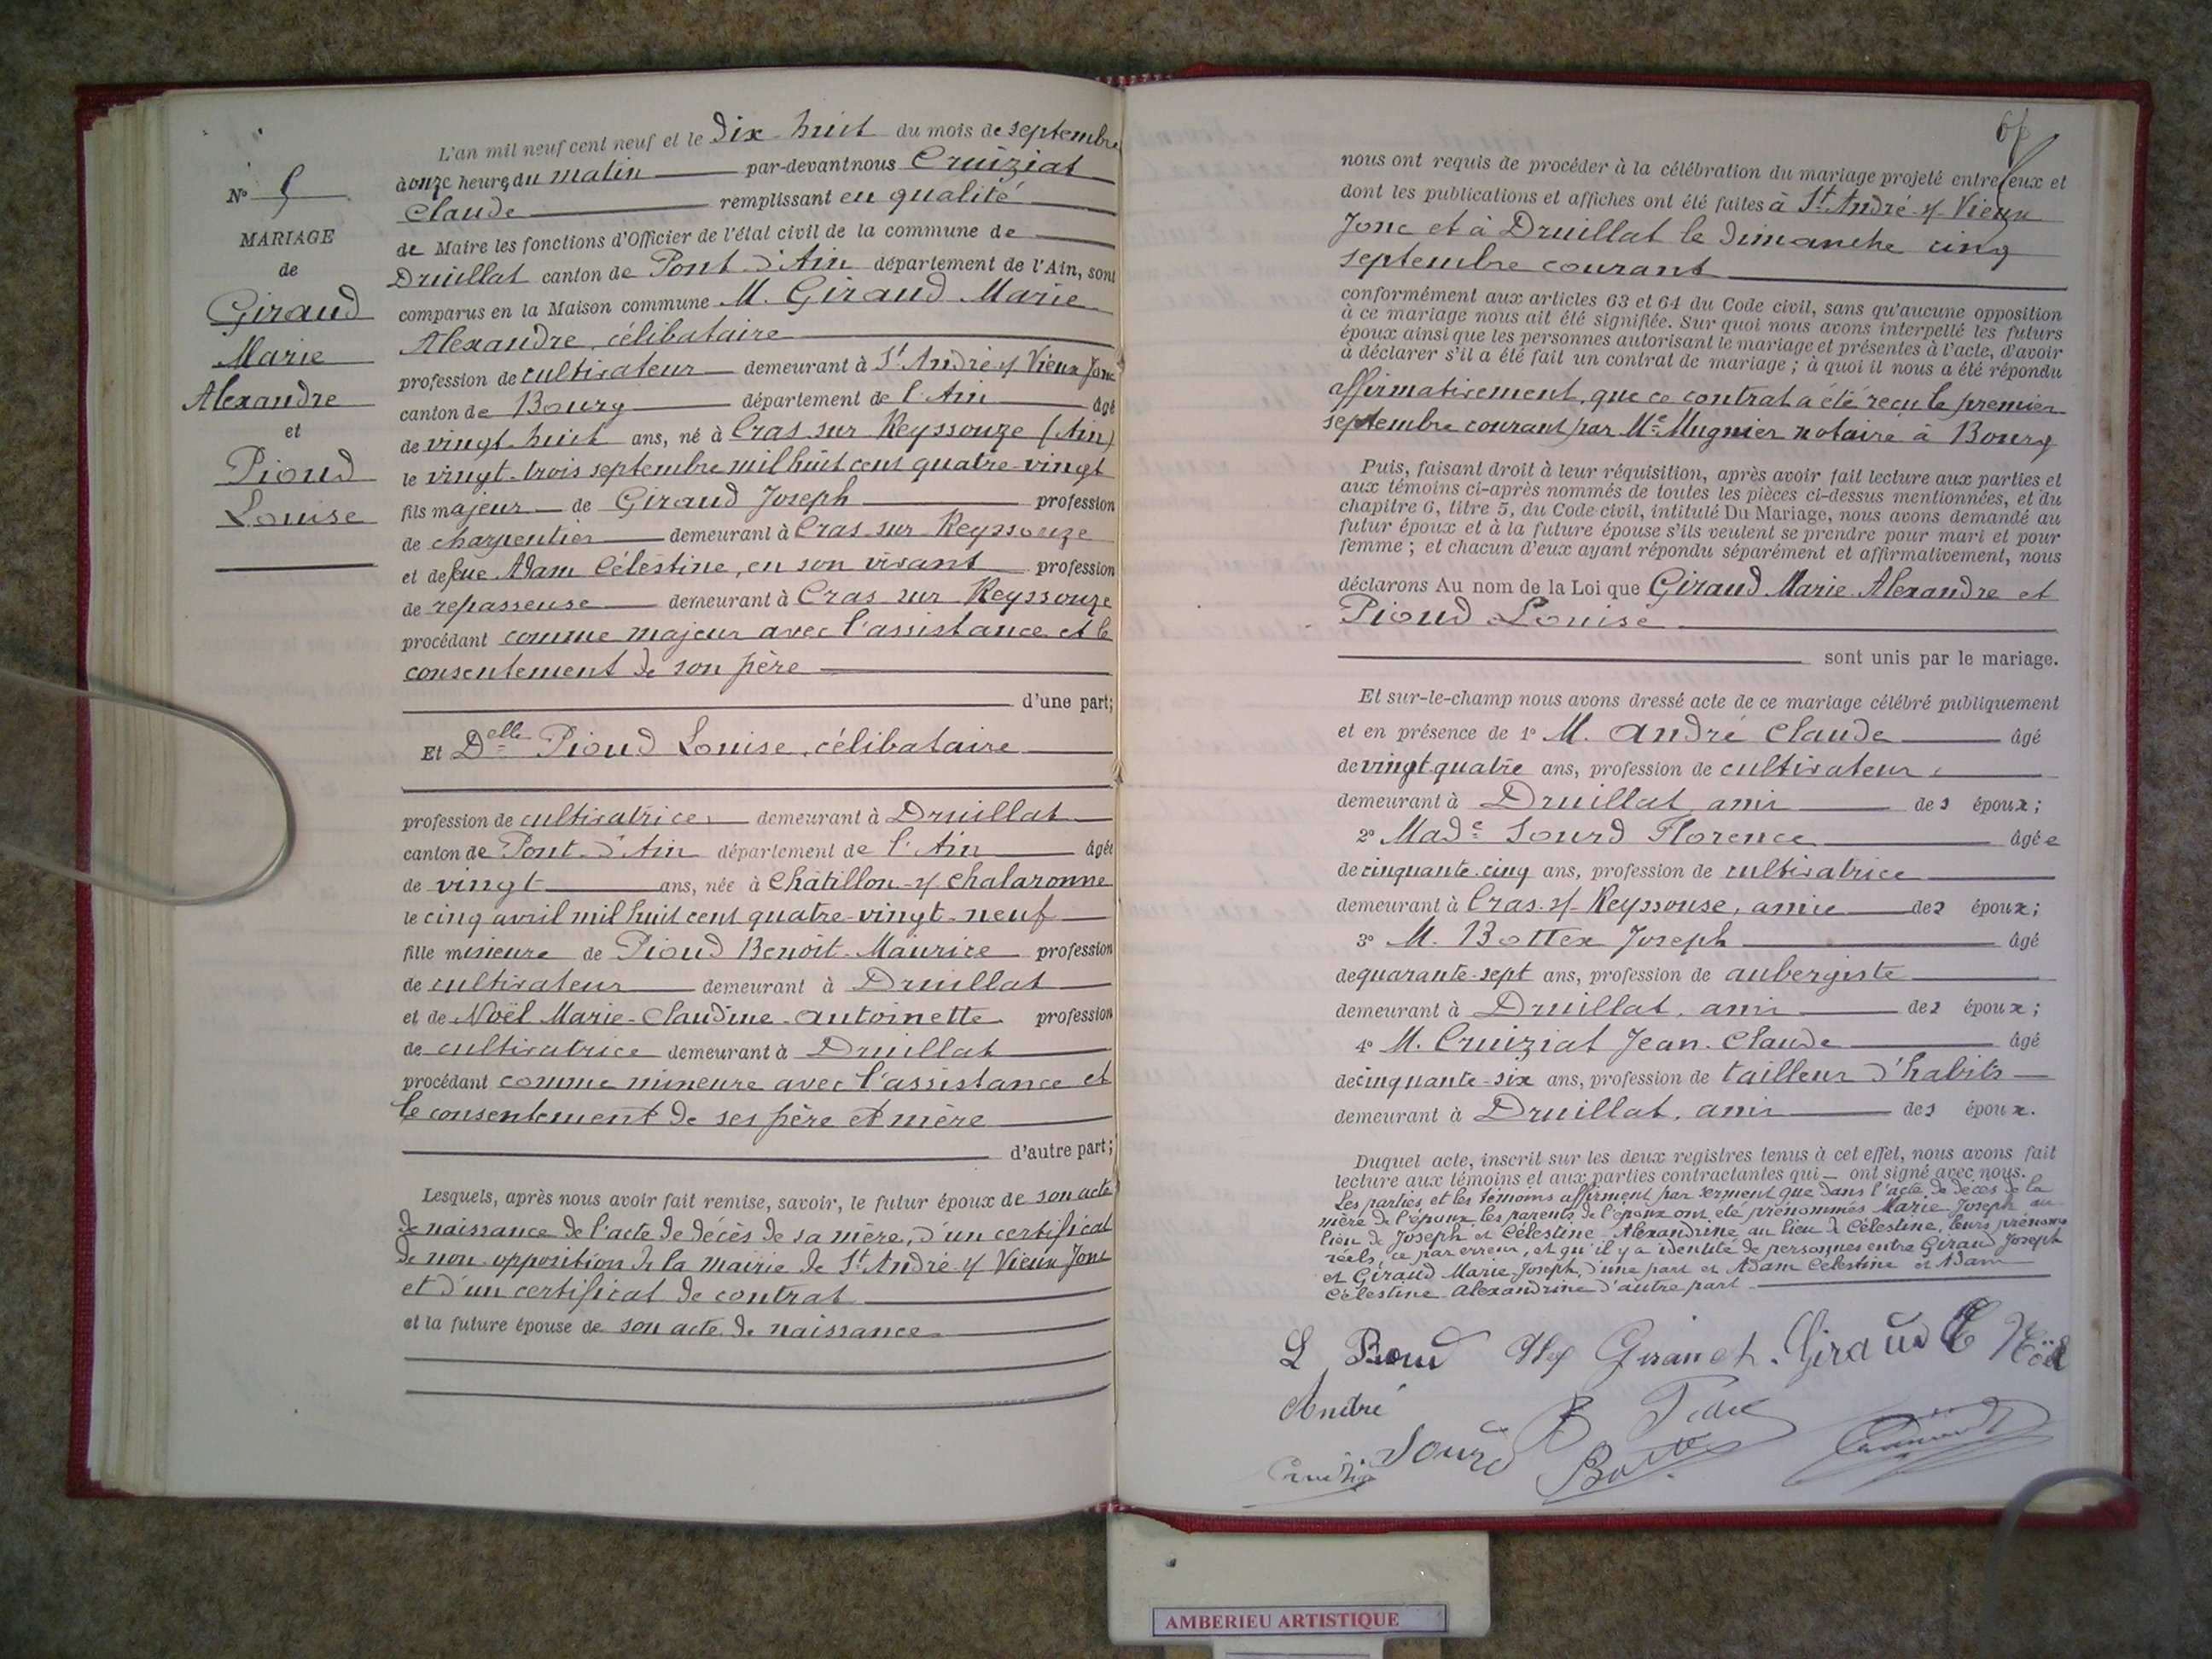 L'an mil neuf cent neuf et le dix huit du mois de septembre
à onze heures du matin par-devant nous Cruiziat
Claude remplissant en qualité
de Maire les fonctions d'Officier de l'état civil de la commune de
Druillat canton de Pont d'Ain département de l'Ain, sont
comparus en la Maison commune M. Giraud Marie
Alexandre, célibataire
profession de cultivateur demeurant à St André s/ Vieux Jonc
canton de Bourg département de l'Ain âgé
de vingt-huit ans, né à Cras sur Reyssouze (Ain)
le vingt-trois septembre mil huit cent quatre-vingt
fils majeur de Giraud Joseph profession
de charpentier demeurant à Cras sur Reyssouze
et de feue Adam Célestine, en son vivant profession
de repasseuse demeurant à Cras sur Reyssouze
procédant comme majeur avec l'assistance et le
consentement de son père
d'une part;
Et Delle Pioud Louise, célibataire
profession de cultivatrice demeurant à Druillat
canton de Pont d'Ain département de l'Ain âgée
de vingt ans, née à Châtillon s/ Chalaronne
le cinq avril mil huit cent quatre-vingt-neuf
fille mineure de Pioud Benoît-Maurice profession
de cultivateur demeurant à Druillat
et de Noël Marie-Claudine-Antoinette profession
de cultivatrice demeurant à Druillat
procédant comme mineure avec l'assistance et
le consentement de ses père et mère
d'autre part;
Lesquels, après nous avoir fait remise, savoir, le futur époux de son acte
de naissance de l'acte de décès de sa mère, d'un certificat
de non opposition de la mairie de St André s/ Vieux Jonc
et d'un certificat de contrat
et la future épouse de son acte de naissance
N° 5
MARIAGE
de
Giraud
Marie
Alexandre
et
Pioud
Louise
nous ont requis de procéder à la célébration du mariage projeté entre eux et
dont les publications et affiches ont été faites à St André s/ Vieux
Jonc et à Druillat le dimanche cinq
septembre courant
conformément aux articles 63 et 64 du Code civil, sans qu'aucune opposition
à ce mariage nous ait été signifiée. Sur quoi nous avons interpellé les futurs
époux ainsi que les personnes autorisant le mariage et présentes à l'acte, d'avoir
à déclarer s'il a été fait un contrat de mariage; à quoi il nous a été répondu
affirmativement, que ce contrat a été reçu le premier
septembre courant par Me Mugnier notaire à Bourg
Puis, faisant droit à leur réquisition, après avoir fait lecture aux parties et
aux témoins ci-après nommés de toutes les pièces ci-dessus mentionnées, et du
chapitre 6, titre 5, du Code civil, intitulé Du Mariage, nous avons demandé au
futur époux et à la future épouse s'ils veulent se prendre pour mari et pour
femme; et chacun d'eux ayant répondu séparément et affirmativement, nous
déclarons Au nom de la Loi que Giraud Marie Alexandre et
Pioud Louise
sont unis par le mariage.
Et sur-le-champ nous avons dressé acte de ce mariage célébré publiquement
et en présence de 1° M. André Claude âgé
de vingt-quatre ans, profession de cultivateur
demeurant à Druillat, ami des époux;
2° Made Sourd Florence âgée
de cinquante-cinq ans, profession de cultivatrice
demeurant à Cras-s/-Reyssouse, amie des époux;
3° M. Bottex Joseph âgé
de quarante-sept ans, profession de aubergiste
demeurant à Druillat, ami des époux;
4° M. Cruiziat Jean-Claude âgé
de cinquante-six ans, profession de tailleur d'habits
demeurant à Druillat, ami des époux.
Duquel acte, inscrit sur les deux registres tenus à cet effet, nous avons fait
lecture aux témoins et aux parties contractantes qui ont signé avec nous.
Les parties et les témoins affirment par serment que dans l'acte de décès de la
mère de l'époux, les parents de l'époux ont été prénommés Marie Joseph au
lieu de Joseph et Célestine-Alexandrine au lieu de Célestine, leurs prénoms
réels, ce par erreur, et qu'il y a identité de personnes entre Giraud Joseph
et Giraud Marie Joseph, d'une part et Adam Célestine et Adam
Célestine-Alexandrine d'autre part
L Pioud Giraud Noël
André
Sourd
AMBERIEU ARTISTIQUE